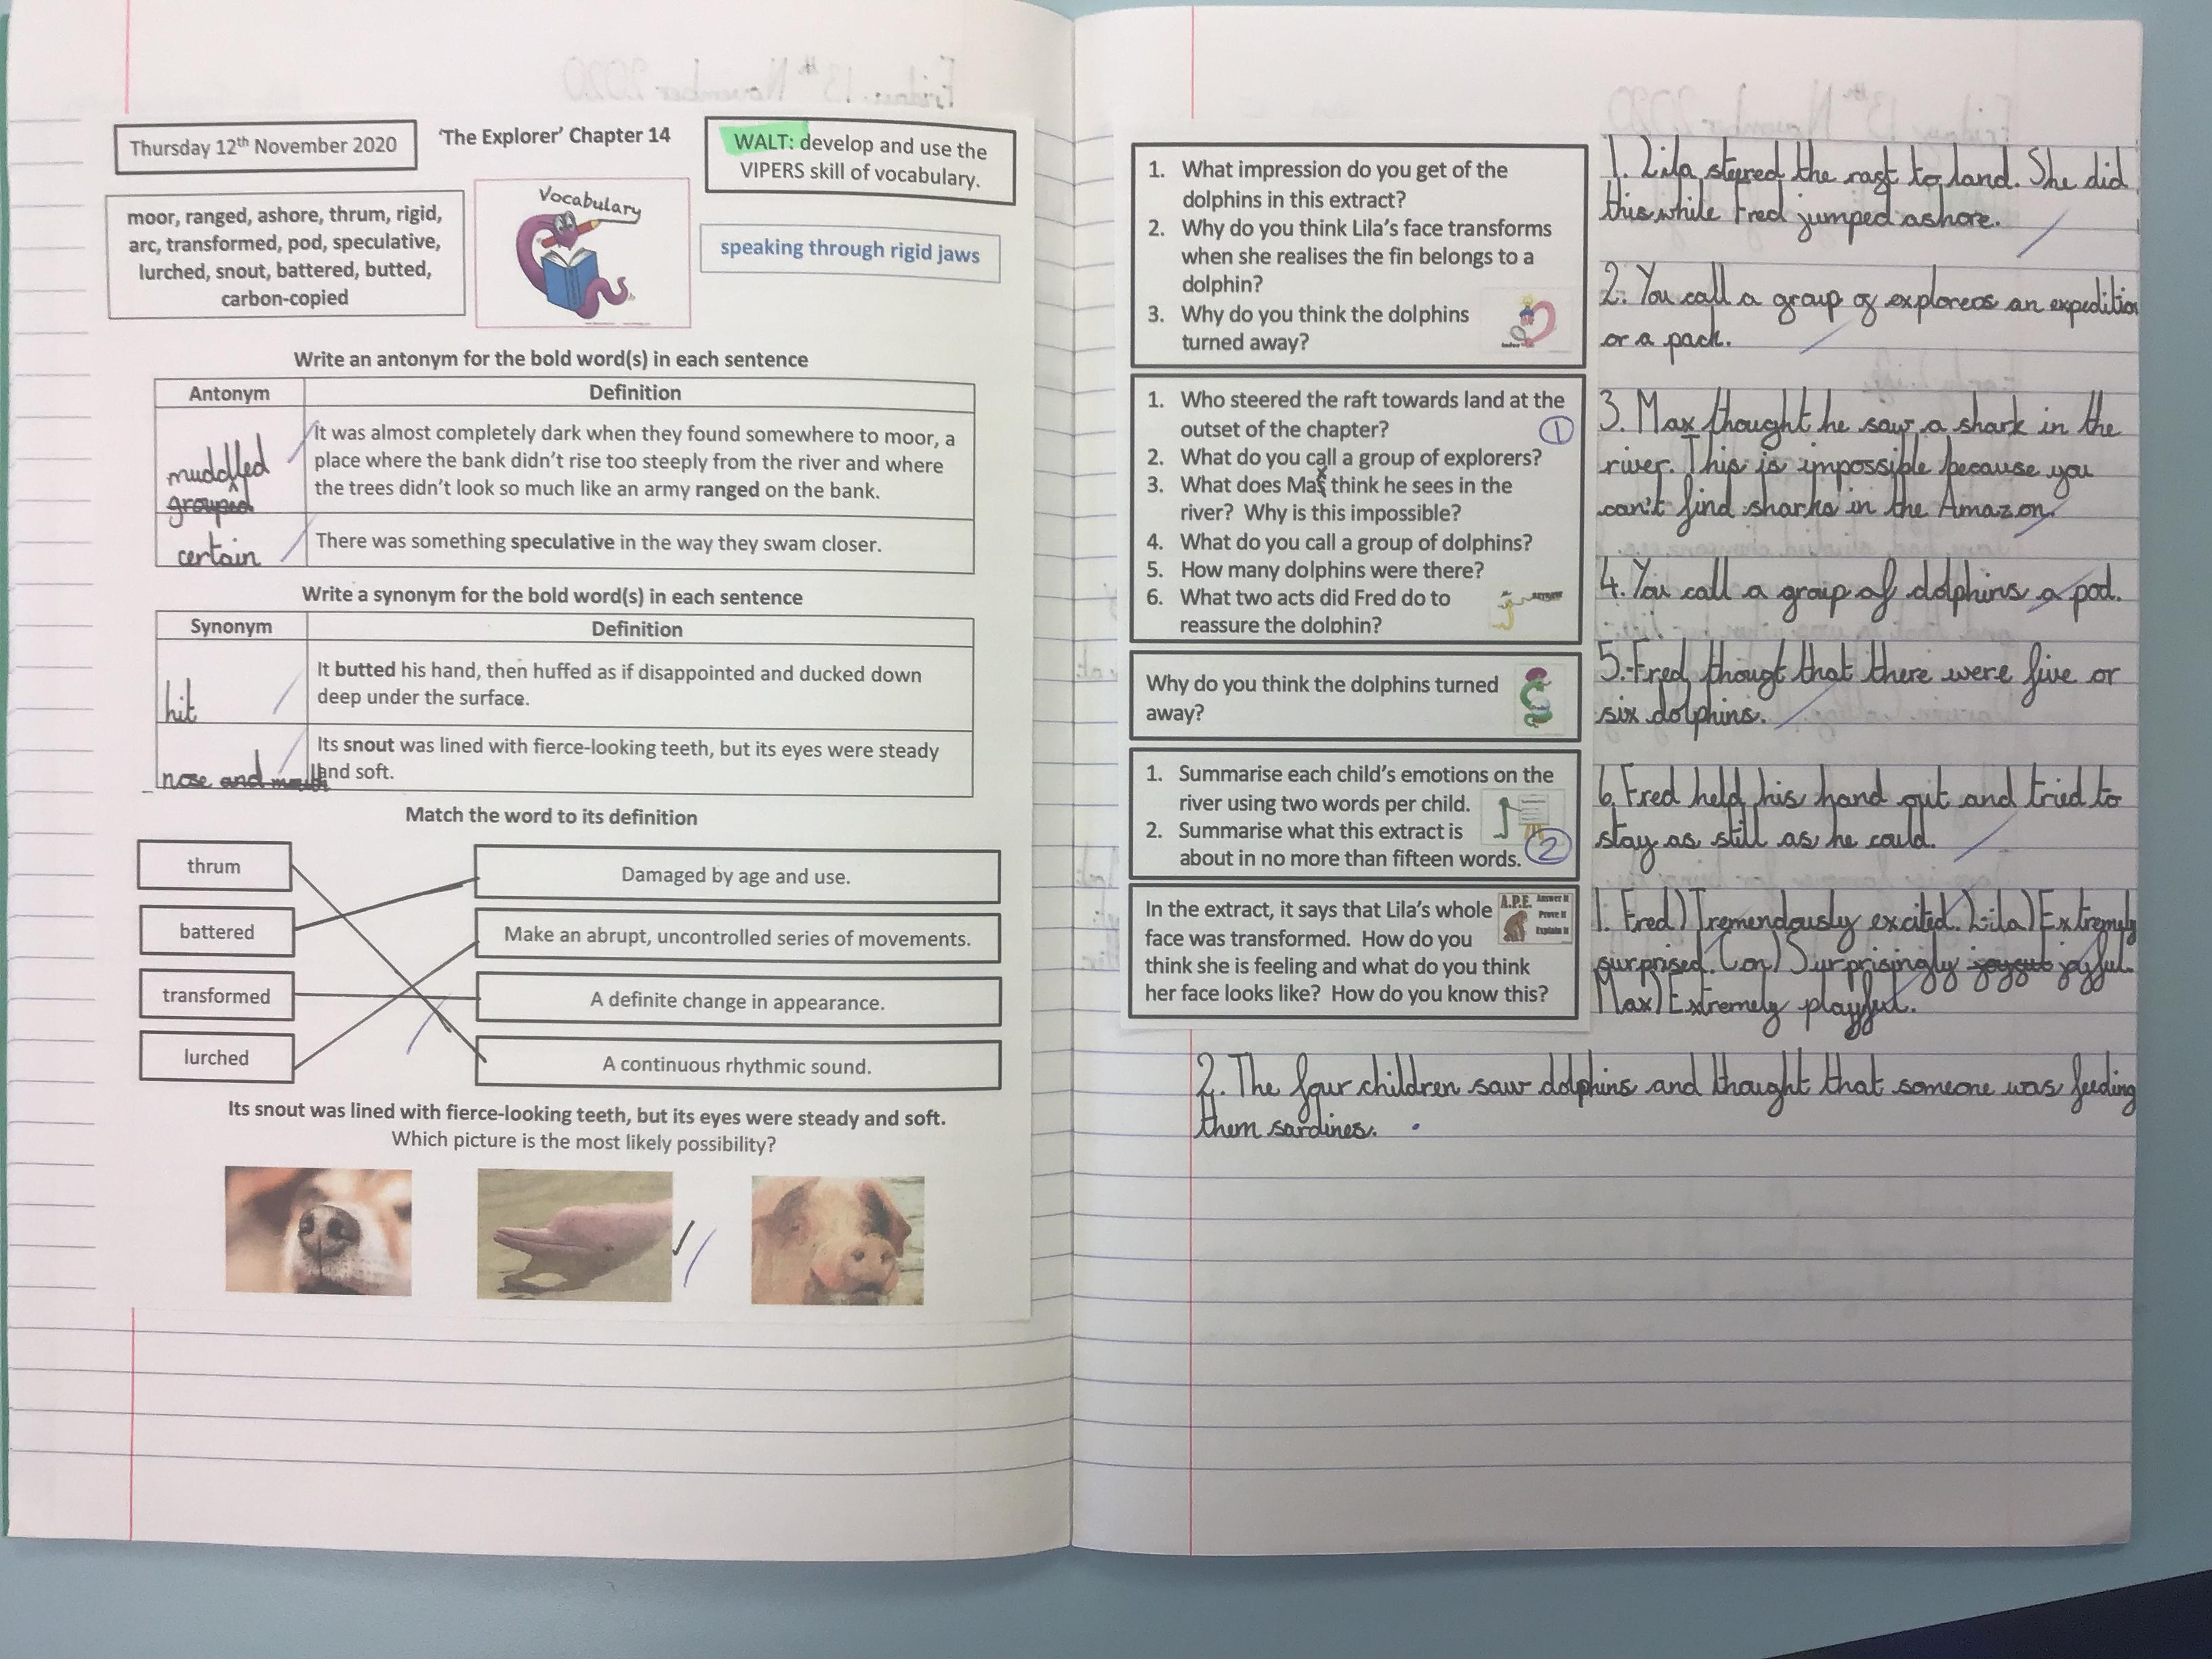 Thursday 12th November 2020
'The Explorer' Chapter 14
WALT: develop and use the
VIPERS skill of vocabulary.
moor, ranged, ashore, thrum, rigid,
arc, transformed, pod, speculative,
lurched, snout, battered, butted,
carbon-copied
Vocabulary
speaking through rigid jaws
Write an antonym for the bold word(s) in each sentence
Antonym
Definition
muddled
grouped
It was almost completely dark when they found somewhere to moor, a
place where the bank didn't rise too steeply from the river and where
the trees didn't look so much like an army ranged on the bank.
certain
There was something speculative in the way they swam closer.
Write a synonym for the bold word(s) in each sentence
Synonym
Definition
hit
It butted his hand, then huffed as if disappointed and ducked down
deep under the surface.
nose and mouth
Its snout was lined with fierce-looking teeth, but its eyes were steady
and soft.
Match the word to its definition
thrum
Damaged by age and use.
battered
Make an abrupt, uncontrolled series of movements.
transformed
A definite change in appearance.
lurched
A continuous rhythmic sound.
Its snout was lined with fierce-looking teeth, but its eyes were steady and soft.
Which picture is the most likely possibility?
1. What impression do you get of the
dolphins in this extract?
2. Why do you think Lila's face transforms
when she realises the fin belongs to a
dolphin?
3. Why do you think the dolphins
turned away?
1. Who steered the raft towards land at the
outset of the chapter?
1
2. What do you call a group of explorers?
3. What does Max think he sees in the
river? Why is this impossible?
4. What do you call a group of dolphins?
5. How many dolphins were there?
6. What two acts did Fred do to
reassure the dolphin?
Why do you think the dolphins turned
away?
1. Summarise each child's emotions on the
river using two words per child.
2. Summarise what this extract is
about in no more than fifteen words.
2
In the extract, it says that Lila's whole
face was transformed. How do you
think she is feeling and what do you think
her face looks like? How do you know this?
A.P.E.
Answer it
Prove it
Explain it
1. Lila steered the raft to land. She did
this while Fred jumped ashore.
2. You call a group of explorers an expedition
or a pack.
3. Max thought he saw a shark in the
river. This is impossible because you
can't find sharks in the Amazon.
4. You call a group of dolphins a pod.
5. Fred thougt that there were five or
six dolphins.
6. Fred held his hand out and tried to
stay as still as he could.
1. Fred) Tremendously excited. Lila) Extremely
surprised. Con) Surprisingly joyful.
Max) Extremely playful.
2. The four children saw dolphins and thought that someone was feeding
them sardines.